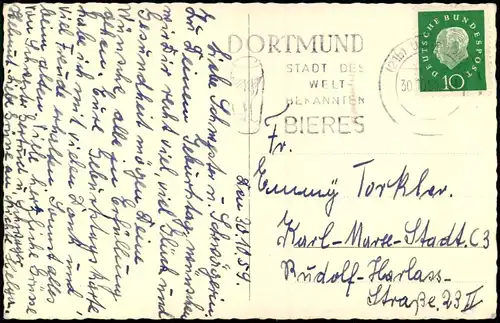 Den 30.11.59.
Liebe Schwester u. Schwägerin,
Zu Deinem Geburtstag wünschen
wir Dir recht viel Glück und
Gesundheit mögen Deine
Wünsche alle in Erfüllung
gehen. Eure Geburtstagskarte
habe ich mit vielen Dank und
viel Freude erhalten. Sonst alles
beim alten. Viele herzliche Grüße
von Schwager Gertrud u.
Helmut.
DORTMUND
STADT DES
WELT-
BEKANNTEN
BIERES
DEUTSCHE BUNDESPOST
10
Fr.
Emmy Torkler.
Karl-Marx-Stadt. C3
Rudolf-Harlass-
Straße 23 II